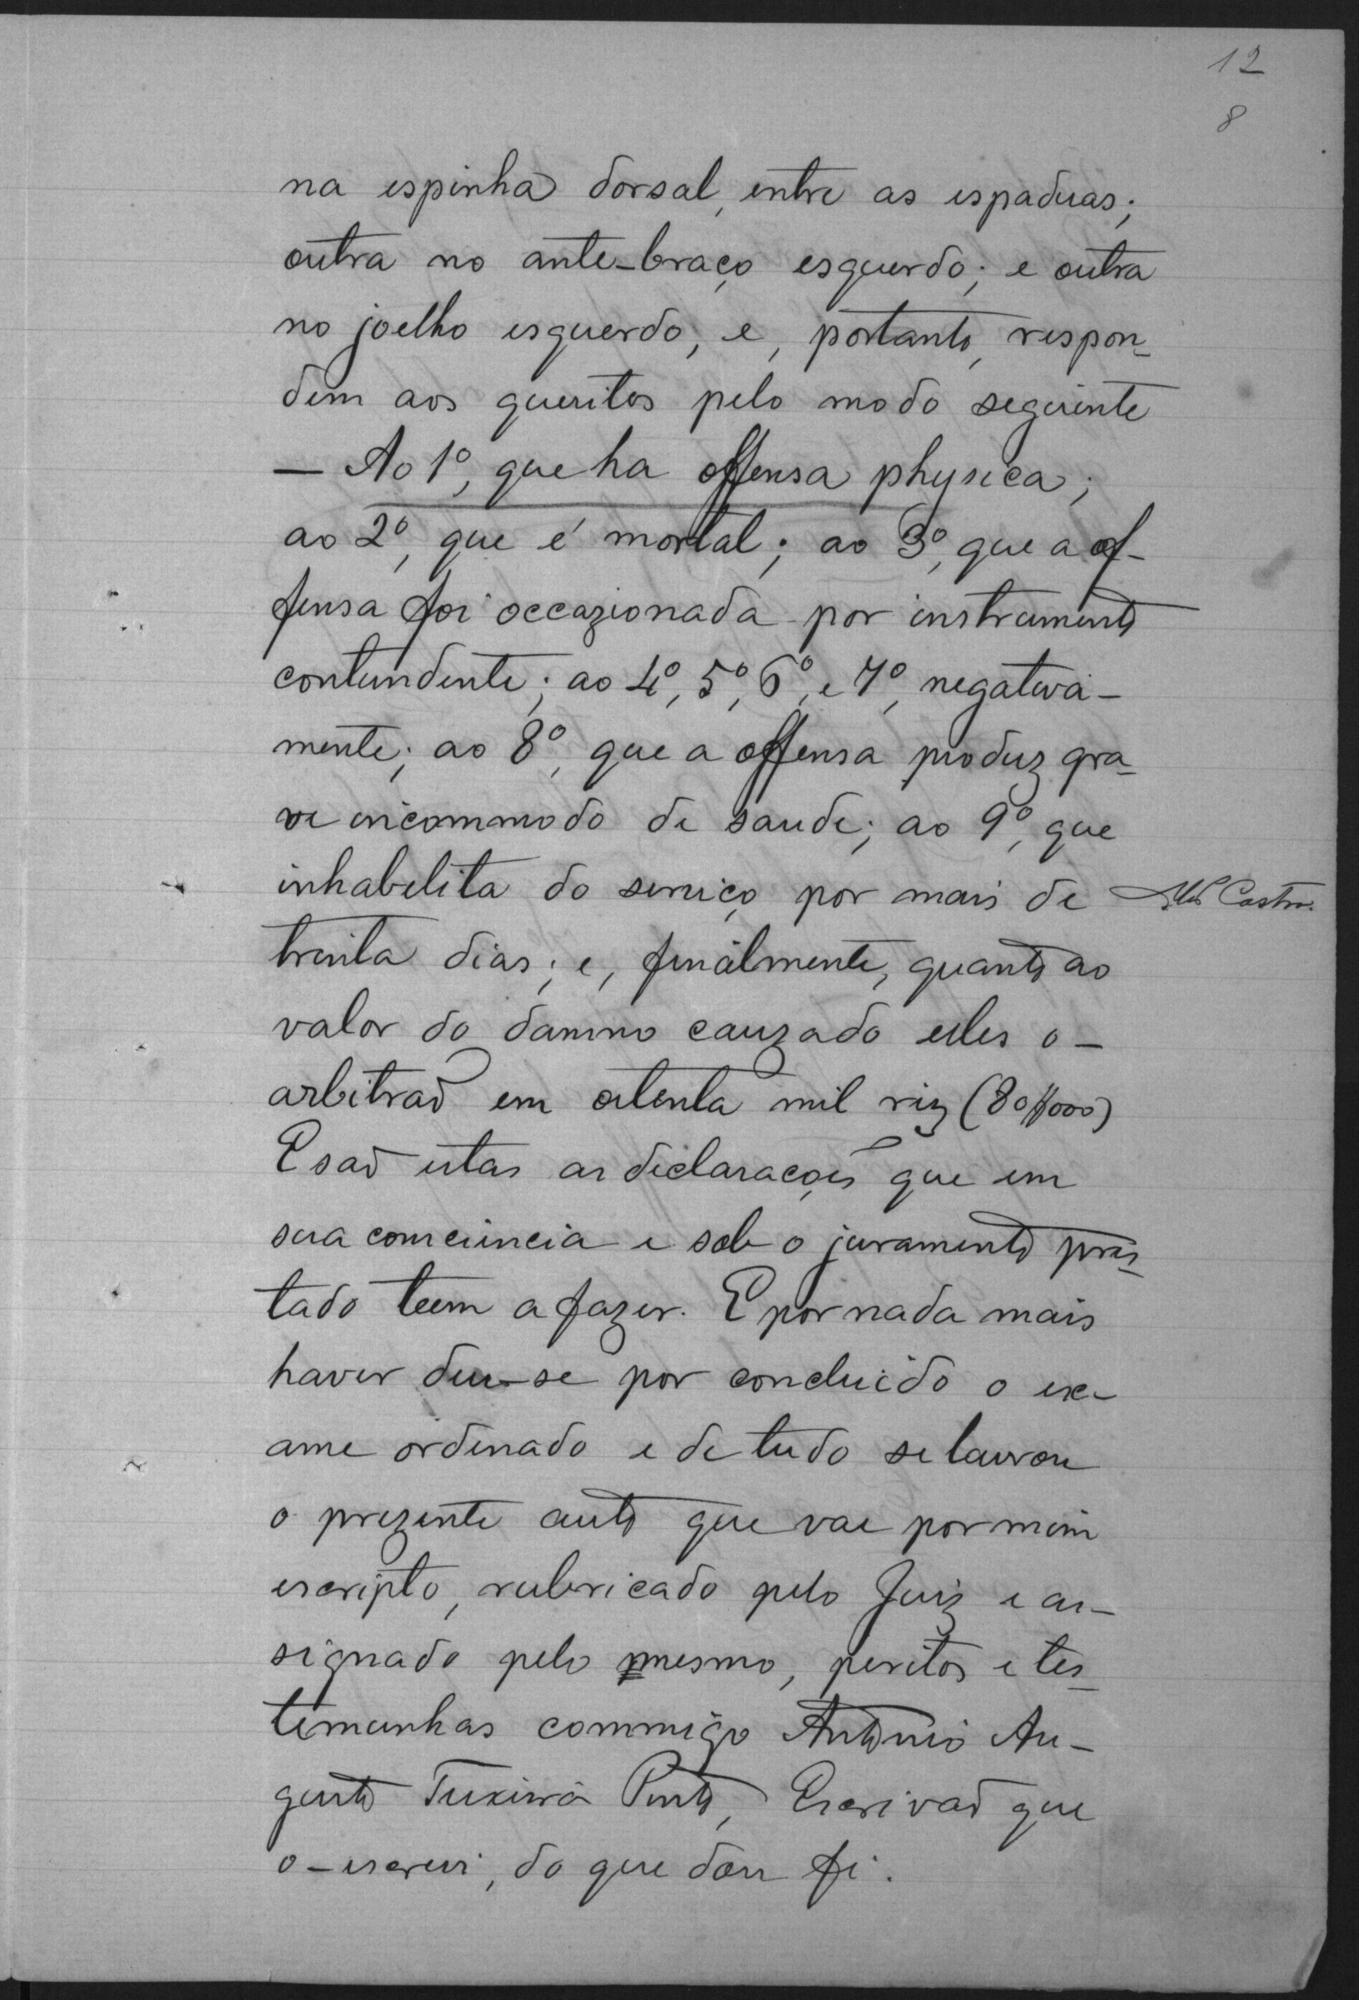 12
8
na espinha dorsal, entre as espaduas;
outra no ante-braço esquerdo; e outra
no joelho esquerdo, e, portanto, respon-
dem aos queritos pelo modo seguinte
— Ao 1º, que ha offensa physica;
ao 2º, que é mortal; ao 3º, que a of-
fensa foi occazionada por instrumento
contundente; ao 4º, 5º, 6º, e 7º, negativa-
mente; ao 8º, que a offensa produz gra-
ve incommodo de saude; ao 9º, que
inhabelita do serviço por mais de
Castro.
trinta dias; e, finalmente, quanto ao
valor do damno cauzado elles o-
arbitraõ em oitenta mil riz (80$000)
E saõ estas as declaraçoẽs que em
sua conciencia e sob o juramento pres-
tado teem a fazer. E por nada mais
haver deu-se por concluido o ex-
ame ordenado e de tudo se lavrou
o prezente auto que vae por mim
escripto, rubricado pelo Juiz e as-
signado pelo mesmo, peritos e tes-
temunhas commigo Antonio Au-
gusto Teixeira Pinto, Escrivaõ que
o-escrevi, do que dou fé.